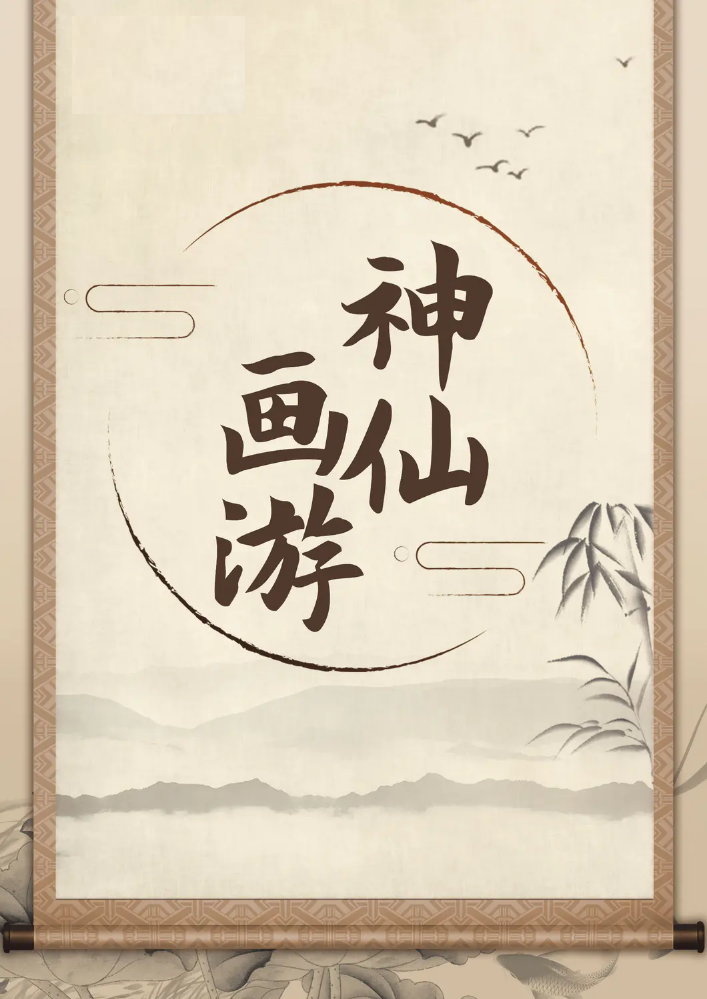 神仙
画游